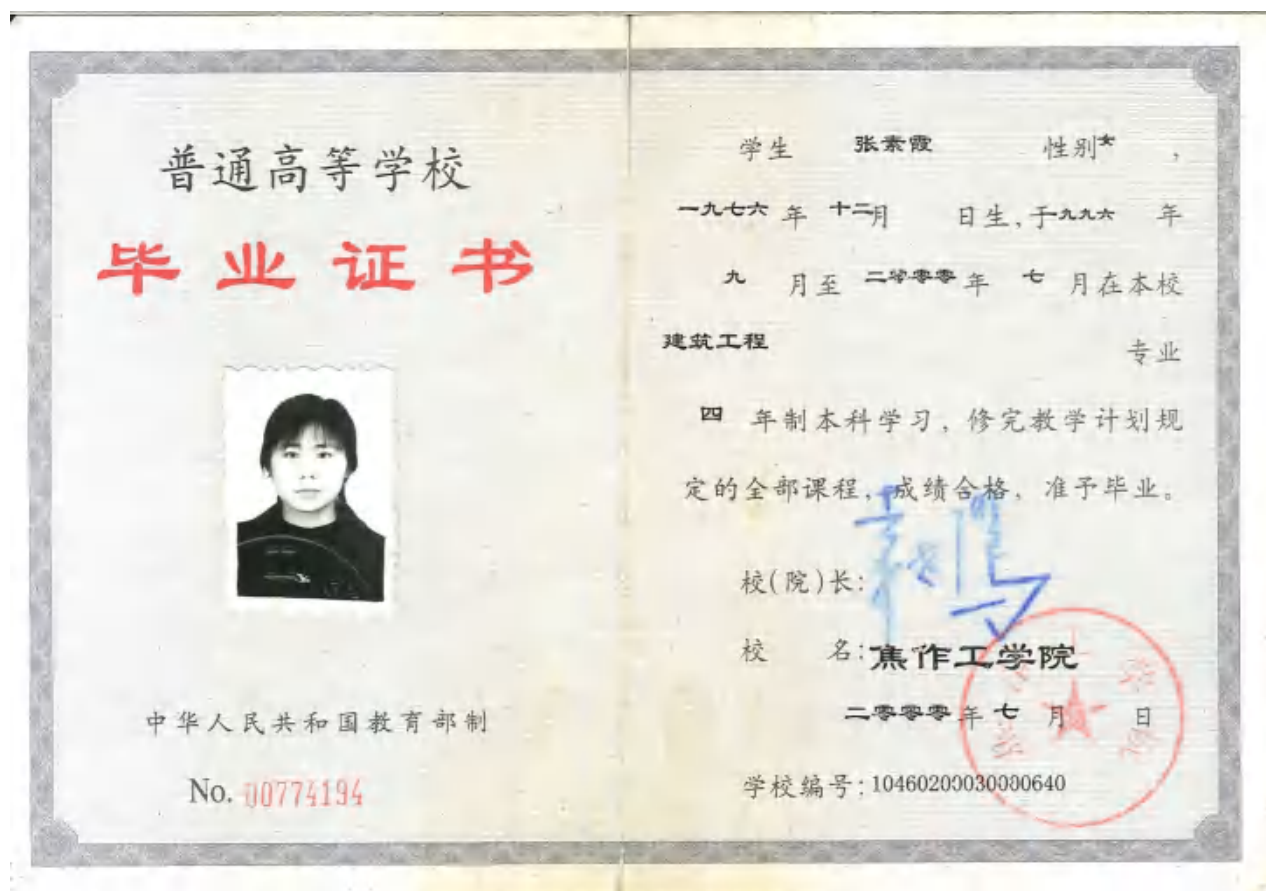 普通高等学校
毕业证书
中华人民共和国教育部制
No. 00774194
学生 张素霞 性别女，
一九七六年 十二月 日生，于一九九六 年
九 月至 二零零零年 七 月在本校
建筑工程 专业
四 年制本科学习，修完教学计划规
定的全部课程，成绩合格，准予毕业。
校(院)长:
校 名:焦作工学院
二零零零年 七 月 日
学校编号:10460200030080640